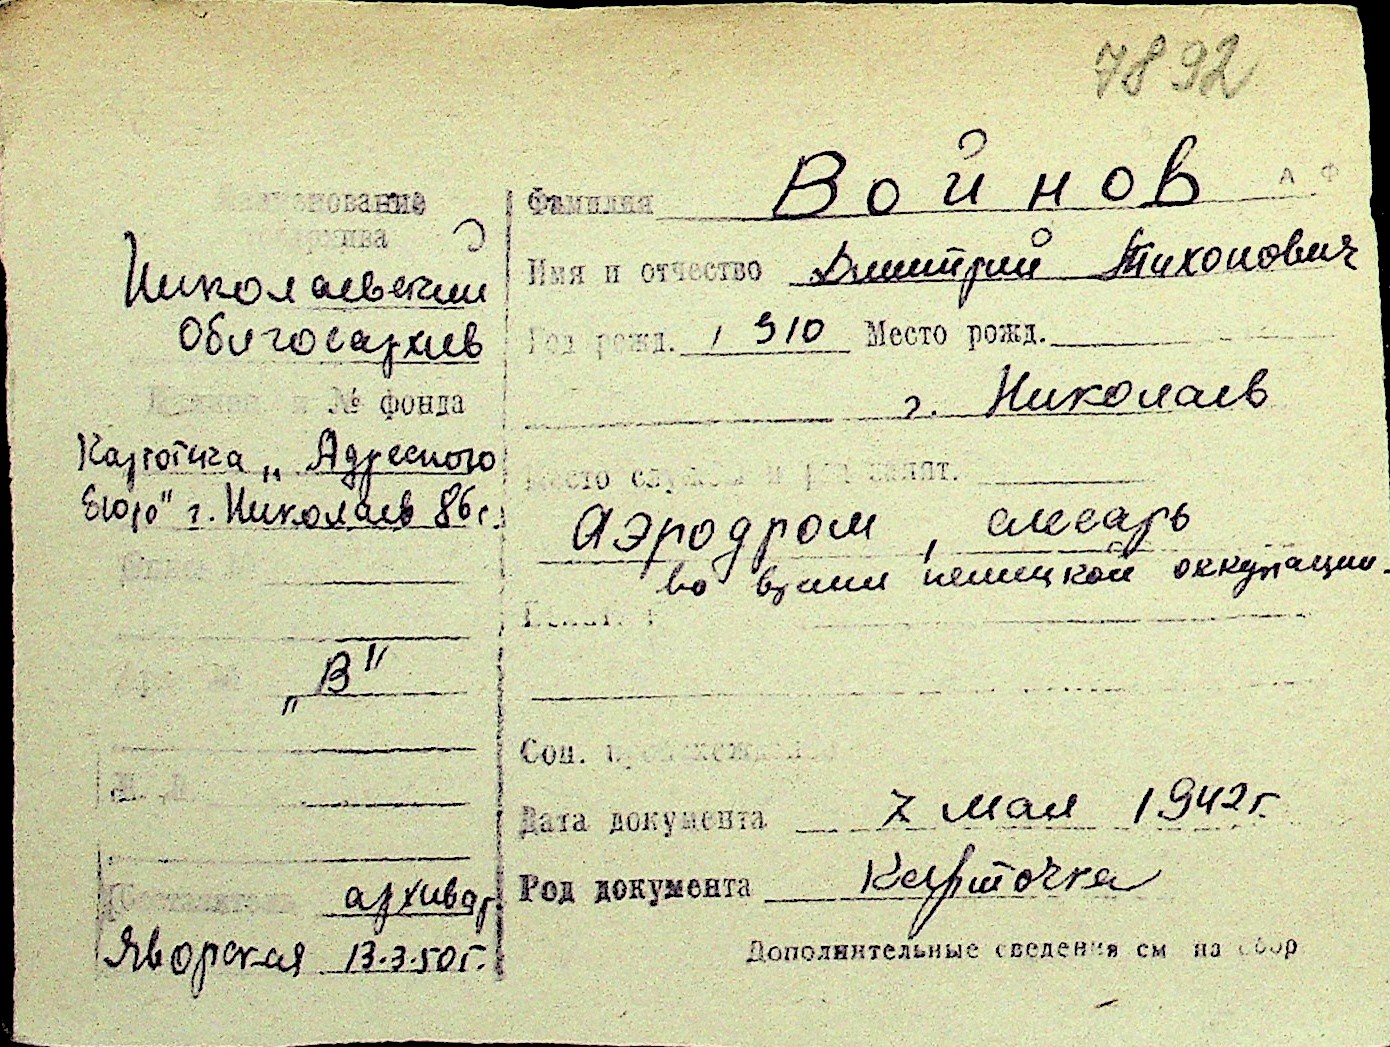 7892
Наименование
госархива
Николаевский
Облгосархив
№ фонда
Картотека „Адресного
бюро" г. Николаев 86г.
Опись №
„В"
Составитель архивар.
Яворская 13.3.50г.
Фамилия Войнов
Имя и отчество Дмитрий Тихонович
Год рожд. 1910 Место рожд.
г. Николаев
Место службы и род занят.
Аэродром, слесарь
во время немецкой оккупации.
Соц. происхождение
Дата документа 7 мая 1942г.
Род документа Карточка
Дополнительные сведения см на обор